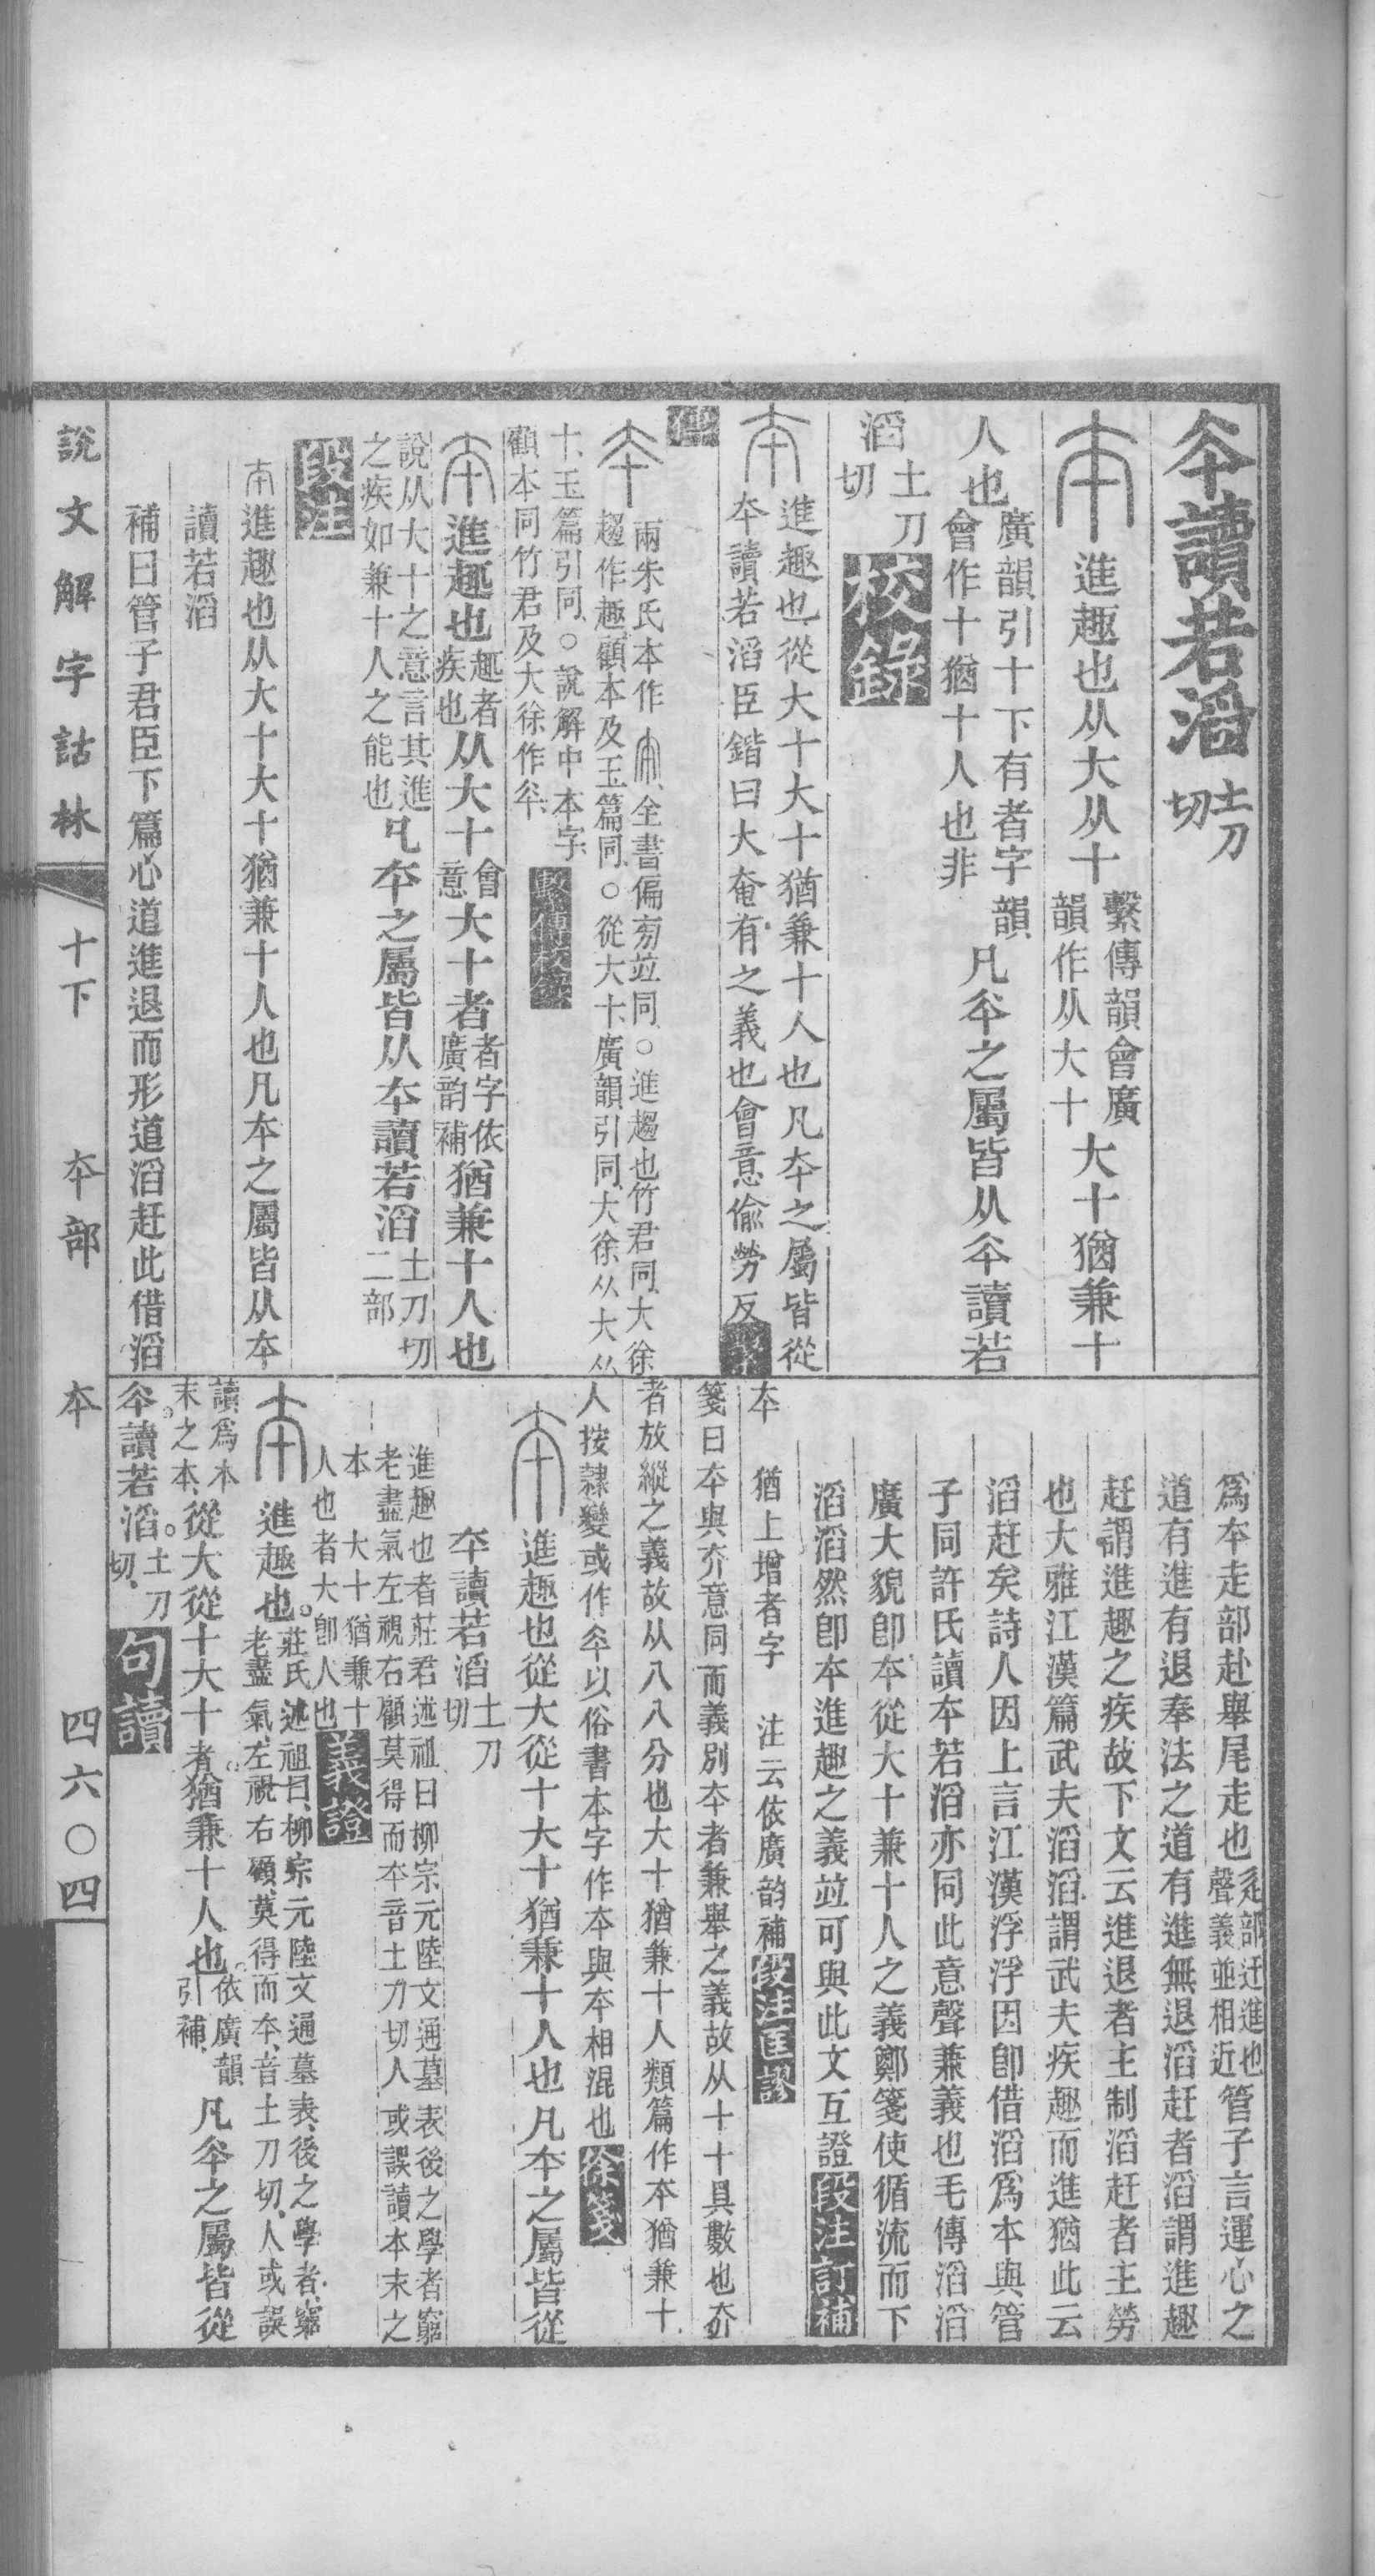 夲讀若滔土刀切
進趣也从大从十繫傳韻會廣韻作从大十大十猶兼十
人也廣韻引十下有者字韻會作十猶十人也非凡夲之屬皆从夲讀若
滔土刀切校錄
進趣也從大十大十猶兼十人也凡夲之屬皆從
夲讀若滔臣鍇曰大奄有之義也會意偸勞反繫
傳
兩朱氏本作全書偏旁竝同○進趨也竹君同大徐
趨作趣顧本及玉篇同○從大十廣韻引同大徐从大从
十玉篇引同○說解中本字
顧本同竹君及大徐作夲繫傳校錄
進趣也趣者疾也从大十會意大十者者字依廣韵補猶兼十人也
說从大十之意言其進之疾如兼十人之能也凡夲之屬皆从夲讀若滔土刀切二部
段注
進趣也从大十大十猶兼十人也凡夲之屬皆从夲
讀若滔
補曰管子君臣下篇心道進退而形道滔赶此借滔
爲夲走部赴舉尾走也辵部迂進也聲義並相近管子言運心之
道有進有退奉法之道有進無退滔赶者滔謂進趣
赶謂進趣之疾故下文云進退者主制滔赶者主勞
也大雅江漢篇武夫滔滔謂武夫疾趣而進猶此云
滔赶矣詩人因上言江漢浮浮因卽借滔爲夲與管
子同許氏讀夲若滔亦同此意聲兼義也毛傳滔滔
廣大貌卽夲從大十兼十人之義鄭箋使循流而下
滔滔然卽夲進趣之義竝可與此文互證段注訂補
夲 猶上增者字 注云依廣韵補段注匡謬
箋曰夲與夰意同而義別夲者兼舉之義故从十十具數也夰
者放縱之義故从八八分也大十猶兼十人類篇作本猶兼十
人按隸變或作夲以俗書本字作夲與夲相混也徐箋
進趣也從大從十大十猶兼十人也凡夲之屬皆從
夲讀若滔土刀切
進趣也者莊君述祖曰柳宗元陸文通墓表後之學者窮
老盡氣左視右顧莫得而夲音土刀切人或誤讀本末之
本 大十猶兼十
人也者大卽人也義證
進趣也。莊氏述祖曰、柳宗元陸文通墓表、後之學者、窮老盡氣、左視右顧、莫得而夲、音土刀切、人或誤
讀爲本末之本、從大從十大十者。猶兼十人也。依廣韻引補、凡夲之屬皆從
夲。讀若滔。土刀切、句讀
說文解字詁林 十下 夲部 夲 四六〇四